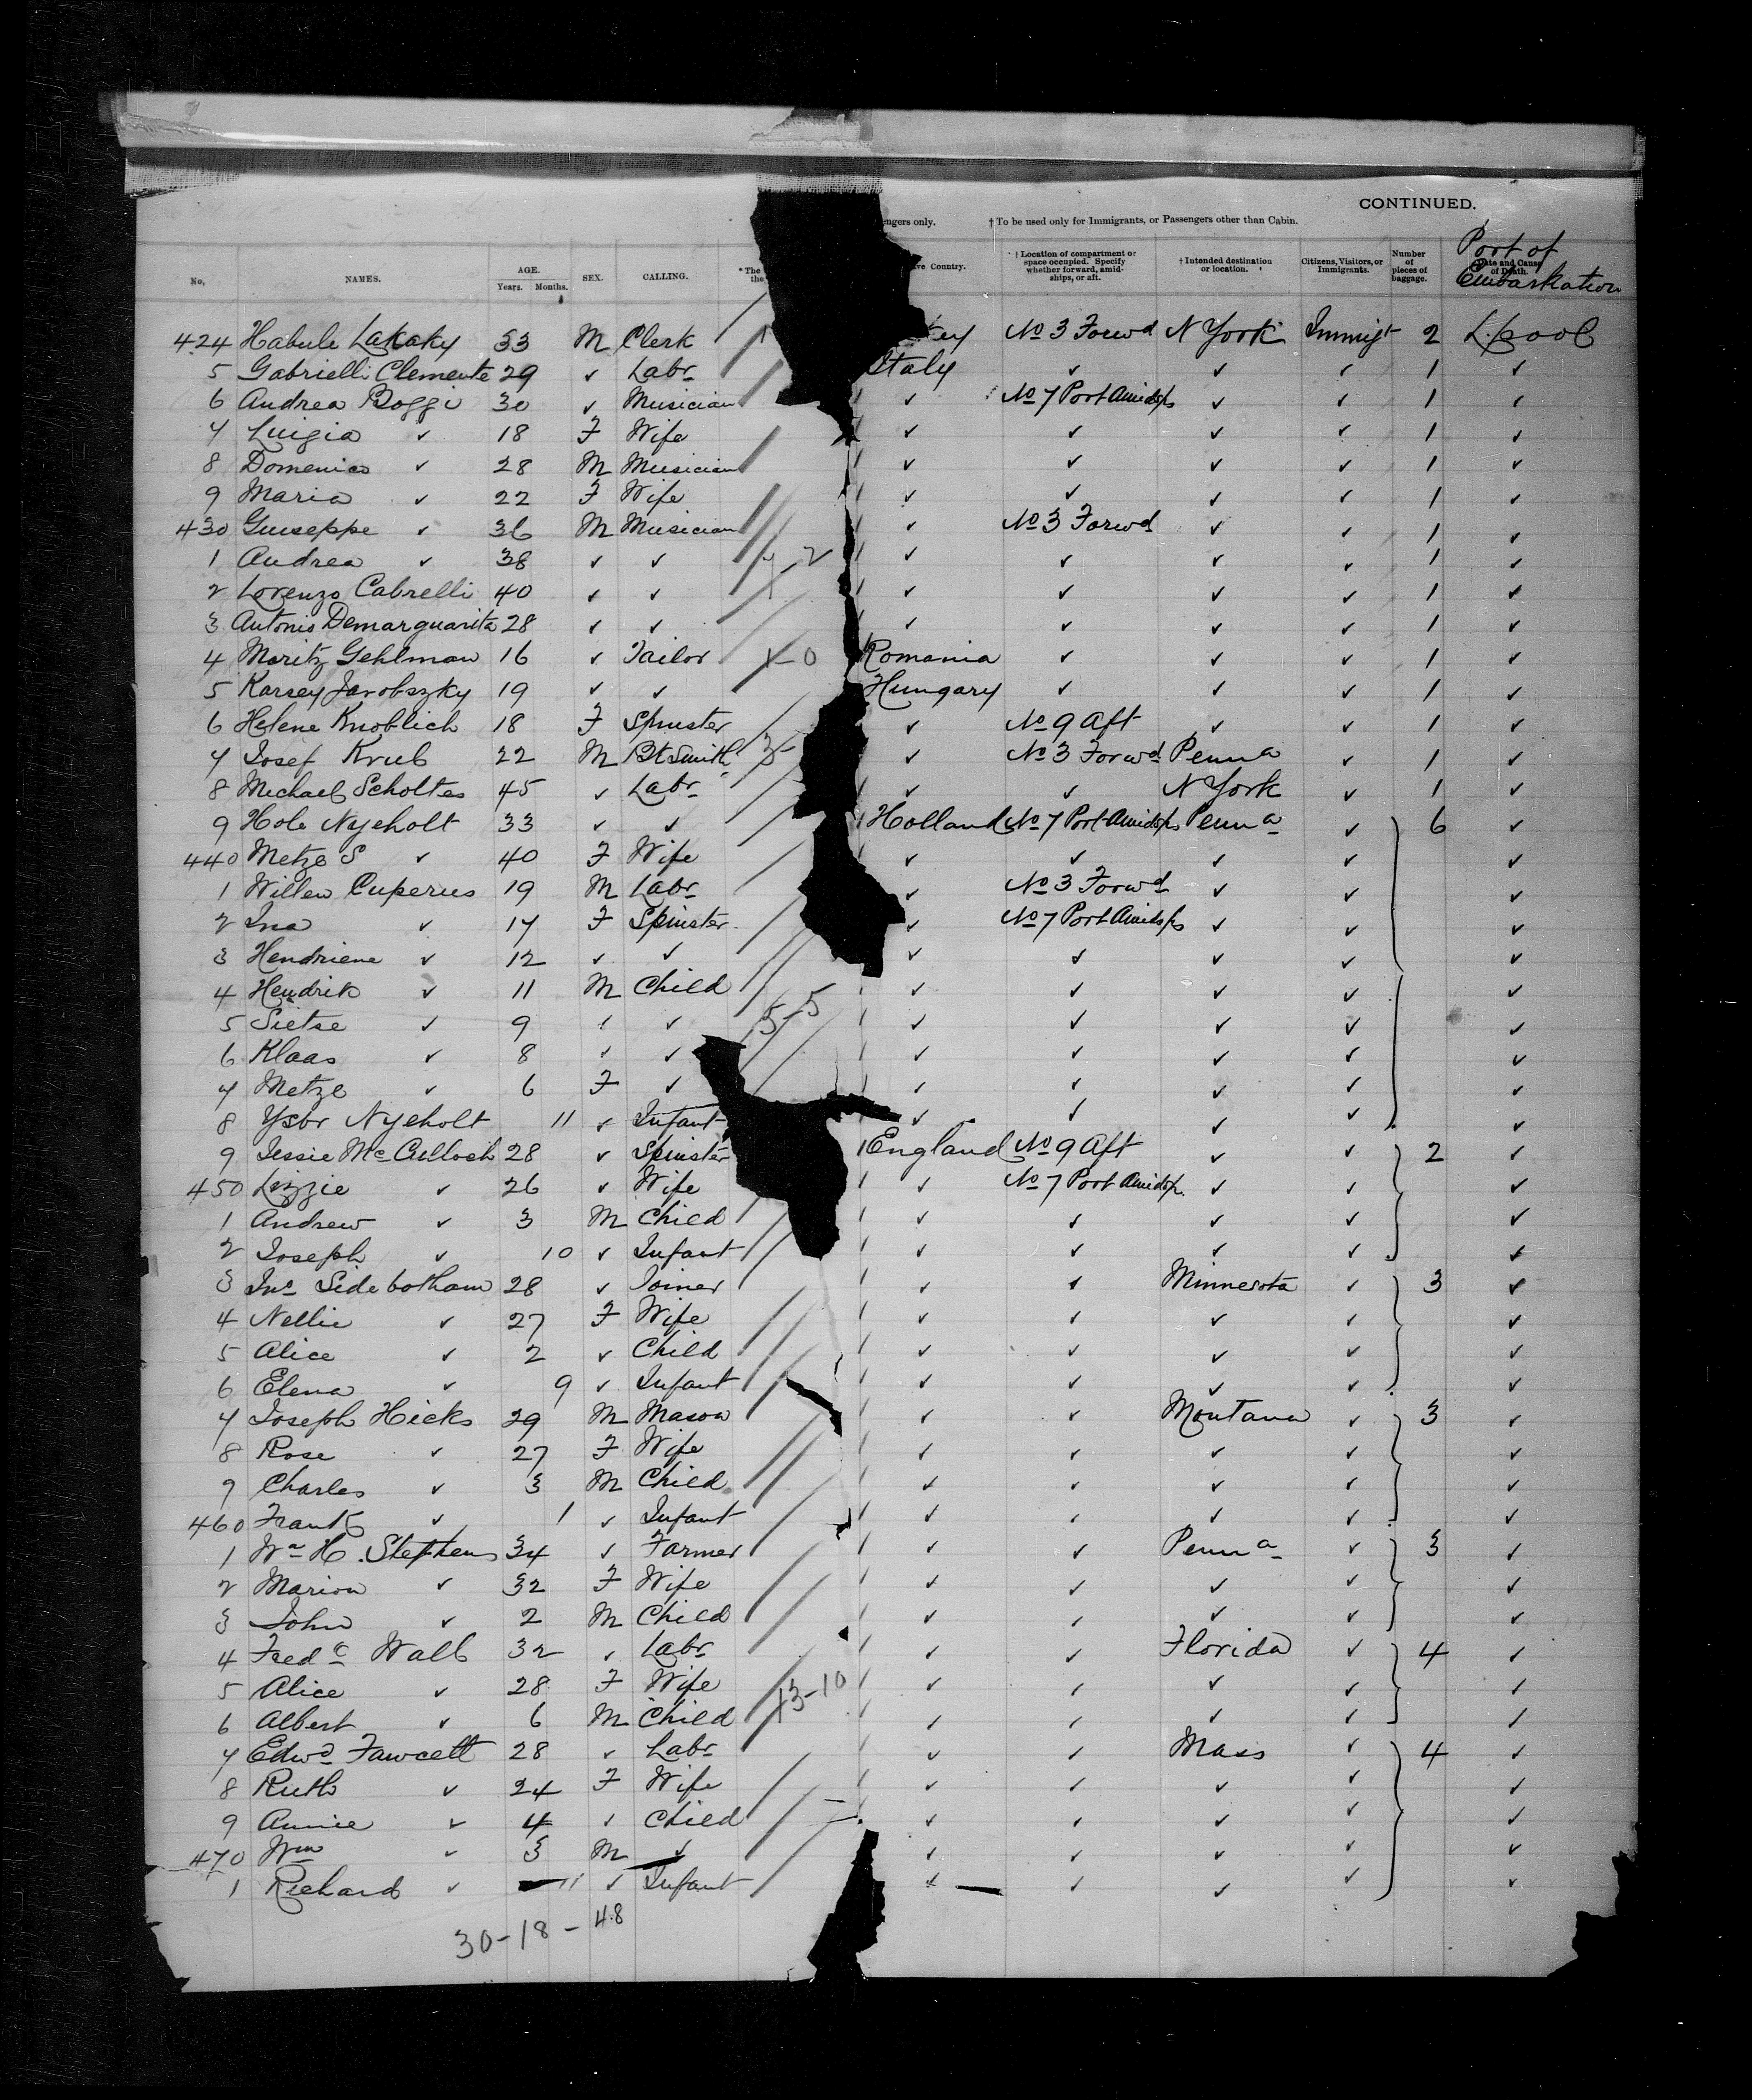 CONTINUED.
ngers only. † To be used only for Immigrants, or Passengers other than Cabin.
Port of Embarkation
No. NAMES. AGE. Years. Months. SEX. CALLING. * The the ve Country. † Location of compartment or space occupied. Specify whether forward, amidships, or aft. † Intended destination or location. Citizens, Visitors, or Immigrants. Number of pieces of baggage. Date and Cause of Death.
424 Habule Lakaky 33 M Clerk key No 3 Forwd N York Immigt 2 L.pool
5 Gabrielli Clemente 29 ✓ Labr Italy ✓ ✓ ✓ 1 ✓
6 Andrea Boggi 30 ✓ Musician ✓ No 7 Port Amidsps ✓ ✓ 1 ✓
7 Luigia ✓ 18 F Wife ✓ ✓ ✓ ✓ 1 ✓
8 Domenico ✓ 28 M Musician ✓ ✓ ✓ ✓ 1 ✓
9 Maria ✓ 22 F Wife ✓ ✓ ✓ ✓ 1 ✓
430 Guiseppe ✓ 36 M Musician ✓ No 3 Forwd ✓ ✓ 1 ✓
1 Andrea ✓ 38 ✓ ✓ ✓ ✓ ✓ ✓ 1 ✓
2 Lorenzo Cabrelli 40 ✓ ✓ ✓ ✓ ✓ ✓ 1 ✓
3 Antonio Demarguarita 28 ✓ ✓ ✓ ✓ ✓ ✓ 1 ✓
4 Moritz Gehlman 16 ✓ Tailor 1-0 Romania ✓ ✓ ✓ 1 ✓
5 Karsey Jarobszky 19 ✓ ✓ Hungary ✓ ✓ ✓ 1 ✓
6 Helene Knoblich 18 F Spinster ✓ No 9 Aft ✓ ✓ 1 ✓
7 Josef Krub 22 M Bk Smith 3- ✓ No 3 Forwd Penna ✓ 1 ✓
8 Michael Scholtes 45 ✓ Labr ✓ ✓ N York ✓ 1 ✓
9 Hole Nyeholt 33 ✓ ✓ Holland No 7 Port Amidsps Penna ✓ 6 ✓
440 Metze S ✓ 40 F Wife ✓ ✓ ✓ ✓ ✓
1 Willem Cuperus 19 M Labr ✓ No 3 Forwd ✓ ✓ ✓
2 Ina ✓ 14 F Spinster ✓ No 7 Port Amidsps ✓ ✓ ✓
3 Hendriene ✓ 12 ✓ ✓ ✓ ✓ ✓ ✓ ✓
4 Hendrik ✓ 11 M Child ✓ ✓ ✓ ✓ ✓
5 Sietse ✓ 9 ✓ ✓ 5-5 ✓ ✓ ✓ ✓ ✓
6 Klaas ✓ 8 ✓ ✓ ✓ ✓ ✓ ✓ ✓
7 Metze ✓ 6 F ✓ ✓ ✓ ✓ ✓ ✓
8 Ysbr Nyeholt 11 ✓ Infant ✓ ✓ ✓ ✓ ✓
9 Jessie McCulloch 28 ✓ Spinster England No 9 Aft ✓ ✓ 2 ✓
450 Lizzie ✓ 26 ✓ Wife ✓ No 7 Port Amidsp. ✓ ✓ ✓
1 Andrew ✓ 3 M Child ✓ ✓ ✓ ✓ ✓
2 Joseph ✓ 10 ✓ Infant ✓ ✓ ✓ ✓ ✓
3 Jno Sidebotham 28 ✓ Joiner ✓ ✓ Minnesota ✓ 3 ✓
4 Nellie ✓ 27 F Wife ✓ ✓ ✓ ✓ ✓
5 Alice ✓ 2 ✓ Child ✓ ✓ ✓ ✓ ✓
6 Elena ✓ 9 ✓ Infant ✓ ✓ ✓ ✓ ✓
7 Joseph Hicks 29 M Mason ✓ ✓ Montana ✓ 3 ✓
8 Rose ✓ 27 F Wife ✓ ✓ ✓ ✓ ✓
9 Charles ✓ 3 M Child ✓ ✓ ✓ ✓ ✓
460 Frank ✓ 1 ✓ Infant ✓ ✓ ✓ ✓ ✓
1 Wm H. Stephens 34 ✓ Farmer ✓ ✓ Penna ✓ 3 ✓
2 Marion ✓ 32 F Wife ✓ ✓ ✓ ✓ ✓
3 John ✓ 2 M Child ✓ ✓ ✓ ✓ ✓
4 Fredc Wall 32 ✓ Labr ✓ ✓ Florida ✓ 4 ✓
5 Alice ✓ 28 F Wife ✓ ✓ ✓ ✓ ✓
6 Albert ✓ 6 M Child 13-10 ✓ ✓ ✓ ✓ ✓
7 Edwd Fawcett 28 ✓ Labr ✓ ✓ Mass ✓ 4 ✓
8 Ruth ✓ 24 F Wife ✓ ✓ ✓ ✓ ✓
9 Annie ✓ 4 ✓ Child ✓ ✓ ✓ ✓ ✓
470 Wm ✓ 3 M ✓ ✓ ✓ ✓ ✓ ✓
1 Richard ✓ 11 ✓ Infant ✓ ✓ ✓ ✓ ✓
30-18-48